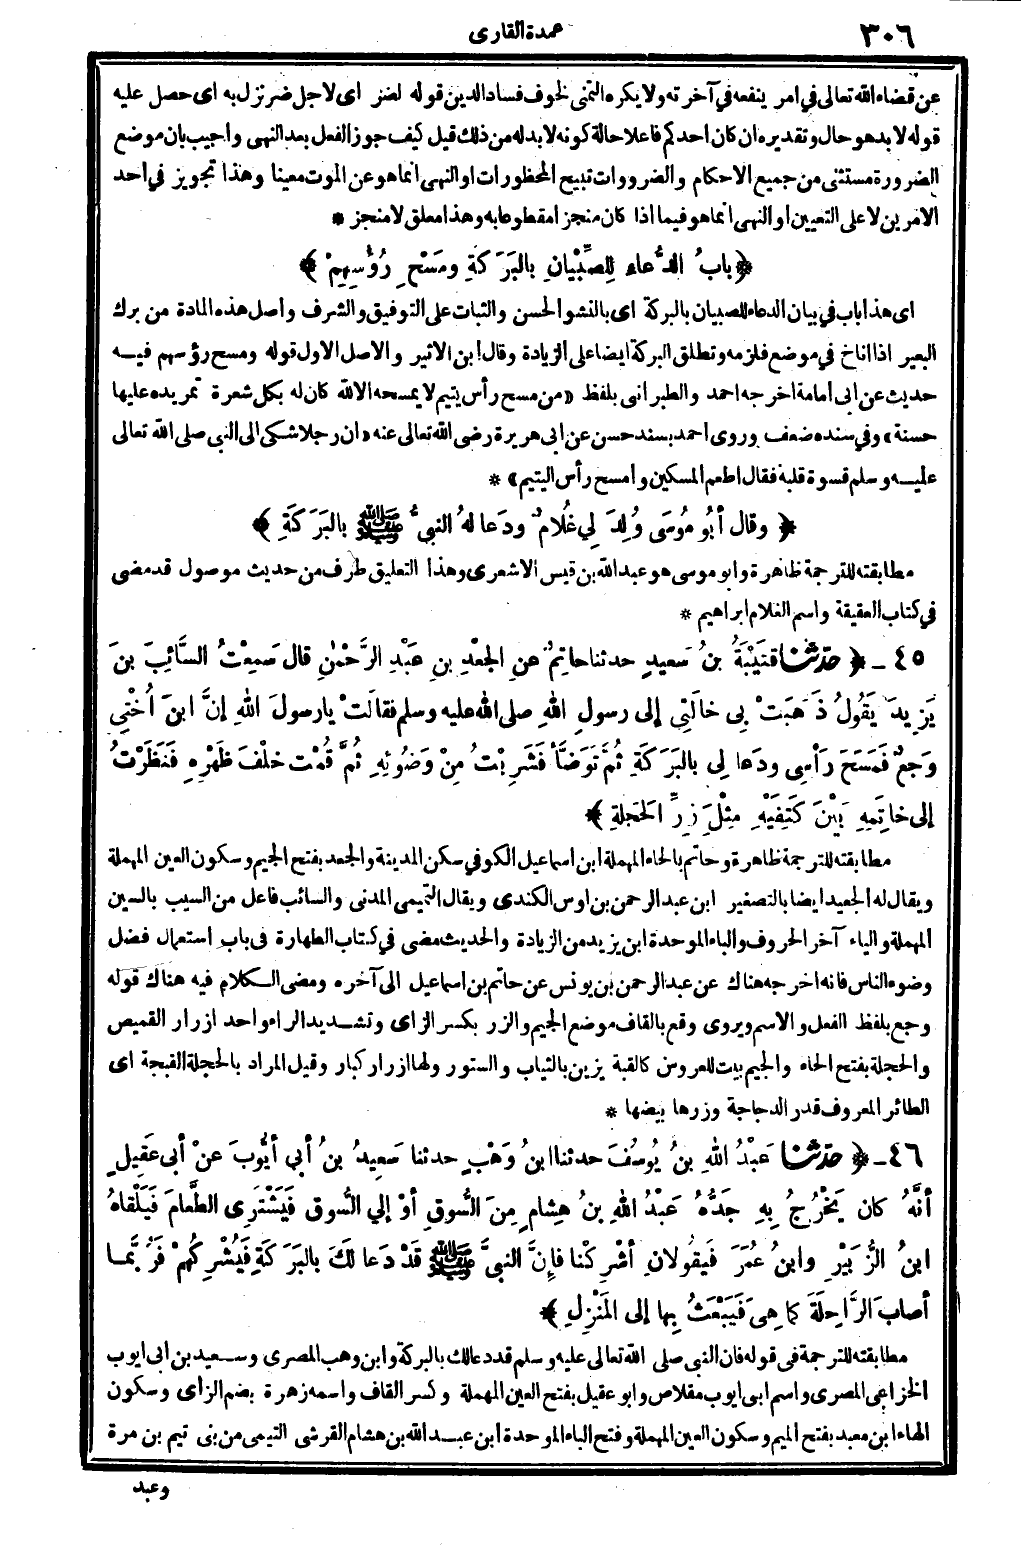 ٣٠٦
عمدة القارى
عن قضاء الله تعالى فى امر ينفعه فى آخرته ولا يكره التمنى لخوف فساد الدين قوله لضر اى لاجل ضر نزل به اى حصل عليه
قوله لا بد هو حال وتقديره ان كان احدكم فاعلا حالة كونه لا بد له من ذلك قيل كيف جوز الفعل بعد النهى واجيب بان موضع
الضرورة مستثنى من جميع الاحكام والضرووات تبيح المحظورات او النهى انما هو عن الموت معينا وهذا تجويز فى احد
الامرين لا على التعيين او النهى انما هو فيما اذا كان منجز امقطوعا به وهذا معلق لا منجز *
﴿ بابُ الدُّعاءِ لِلصِّبْيانِ بالبَرَكَةِ ومَسْحِ رُؤُسِهِمْ ﴾
اى هذا باب فى بيان الدعاء للصبيان بالبركة اى بالنشو الحسن والثبات على التوفيق والشرف واصل هذه المادة من برك
البعير اذا اناخ فى موضع فلزمه وتطلق البركة ايضا على الزيادة وقال ابن الاثير والاصل الاول قوله ومسح رؤسهم فيه
حديث عن ابى أمامة اخرجه احمد والطبرانى بلفظ «من مسح رأس يتيم لا يمسحه الا لله كان له بكل شعرة تمر يده عليها
حسنة» وفى سنده ضعف وروى احمد بسند حسن عن ابى هريرة رضى الله تعالى عنه «ان رجلا شكى الى النبى صلى الله تعالى
عليه وسلم قسوة قلبه فقال اطعم المسكين وامسح رأس اليتيم» *
﴿ وقال أبُو مُوسَى وُلِدَ لِي غُلامٌ ودَعا لهُ النبىُّ ﷺ بالبَرَكَةِ ﴾
مطابقته للترجمة ظاهرة وابو موسى هو عبد الله بن قيس الاشعرى وهذا التعليق طرف من حديث موصول قد مضى
فى كتاب العقيقة واسم الغلام ابراهيم *
٤٥ - ﴿ حدّثنا قتَيْبَةُ بنُ سَعيدٍ حدثنا حاتِمٌ عنِ الجَعدِ بنِ عَبْدِ الرَّحْمٰنِ قال سَمِعْتُ السَّائِبَ بنَ
يَزِيدَ يَقُولُ ذَهَبَتْ بِى خالَتِى إلى رسولِ اللهِ صلى الله عليه وسلم فقالَتْ يا رسولَ اللهِ إنَّ ابنَ أُخْتِى
وَجِعٌ فَمَسَحَ رَأْسِى ودَعا لِى بالبَرَكَةِ ثُمَّ تَوَضَّأَ فَشَرِبْتُ مِنْ وَضُوئِهِ ثُمَّ قُمْتُ خَلْفَ ظَهْرِهِ فَنَظَرْتُ
إلى خاتِمِهِ بَيْنَ كَتِفَيْهِ مِثْلَ زِرِّ الحَجَلةِ ﴾
مطابقته للترجمة ظاهرة وحاتم بالحاء المهملة ابن اسماعيل الكوفى سكن المدينة والجعد بفتح الجيم وسكون العين المهملة
ويقال له الجعيد ايضا بالتصغير ابن عبد الرحمن بن اوس الكندى ويقال التميمى المدنى والسائب فاعل من السيب بالسين
المهملة والياء آخر الحروف والباء الموحدة ابن يزيد من الزيادة والحديث مضى فى كتاب الطهارة فى باب استعمال فضل
وضوء الناس فانه اخرجه هناك عن عبد الرحمن بن يونس عن حاتم بن اسماعيل الى آخره ومضى الكلام فيه هناك قوله
وجع بلفظ الفعل والاسم ويروى وقع بالقاف موضع الجيم والزر بكسر الزاى وتشديد الراء واحد ازرار القميص
والحجلة بفتح الحاء والجيم بيت للعروس كالقبة يزين بالثياب والستور ولها ازرار كبار وقيل المراد بالحجلة القبجة اى
الطائر المعروف قدر الدجاجة وزرها بيضها *
٤٦ - ﴿ حدّثنا عَبْدُ اللهِ بنُ يُوسُفَ حدثنا ابنُ وَهْبٍ حدثنا سَعِيدُ بنُ أبي أيُّوبَ عنْ أبى عَقِيلٍ
أنَّهُ كان يَخْرُجُ بِهِ جَدُّهُ عَبْدُ اللهِ بنُ هِشامٍ مِنَ السُّوقِ أوْ إلى السُّوقِ فَيَشْتَرِى الطَّعامَ فَيَلْقاهُ
ابنُ الزُّبَيْرِ وابنُ عُمَرَ فَيَقُولانِ أشْرِكْنا فإنَّ النبىَّ ﷺ قَدْ دَعا لَكَ بالبَرَكَةِ فَيُشْرِكُهُمْ فَرُبَّما
أصابَ الرَّاحِلَةَ كما هِىَ فَيَبْعَثُ بِها إلى المَنْزِلِ ﴾
مطابقته للترجمة فى قوله فان النبى صلى الله تعالى عليه وسلم قد دعا لك بالبركة وابن وهب المصرى وسعيد بن ابى ايوب
الخزاعى المصرى واسم ابى ايوب مقلاص وابو عقيل بفتح العين المهملة وكسر القاف واسمه زهرة بضم الزاى وسكون
الهاء ابن معبد بفتح الميم وسكون العين المهملة وفتح الباء الموحدة ابن عبد الله بن هشام القرشى التيمى من بنى تيم بن مرة
وعبد